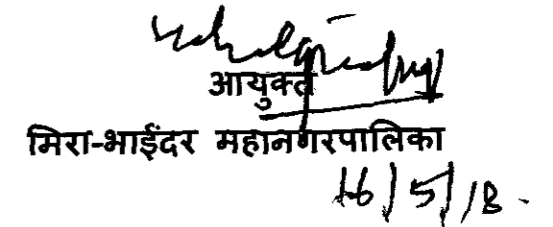 आयुक्त
मिरा-भाईंदर महानगरपालिका
16/5/18.